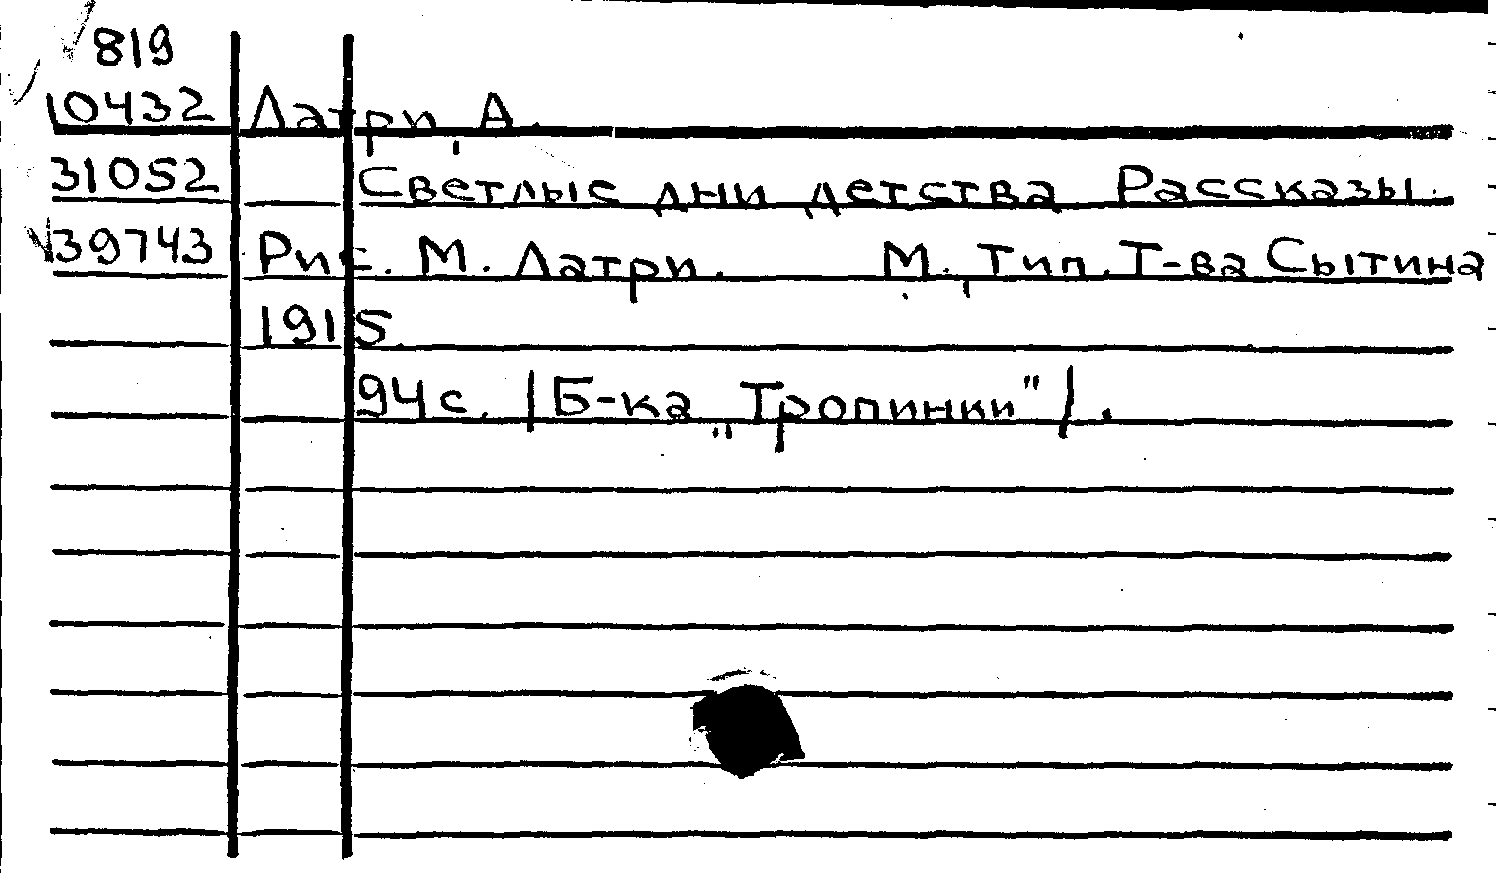 819
10432 Латри, А.
31052 Светлые дни детства Рассказы.
39743 Рис. М. Латри. М., Тип. Т-ва Сытина,
1915.
94 с. /Б-ка „Тропинки"/.